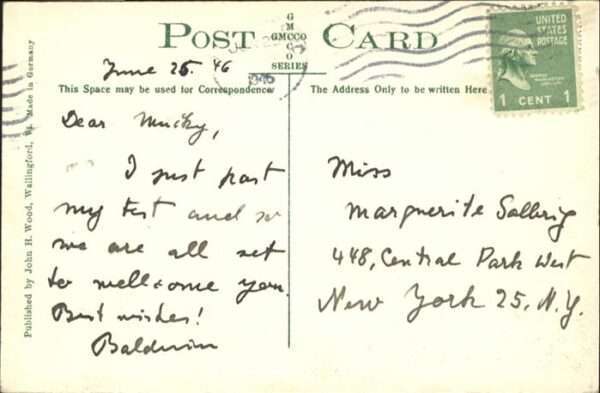 POST CARD
G
M
GMCCO
C
O
SERIES
UNITED
STATES
POSTAGE
1 CENT 1
June 25. 46
This Space may be used for Correspondence
The Address Only to be written Here.
Published by John H. Wood, Wallingford, Vt. Made in Germany
Dear Mucky,
I just past
my test and so
we are all set
to wellcome you.
Best wishes!
Baldwin
Miss
Marguerite Solbrig
448, Central Park West
New York 25, N.Y.